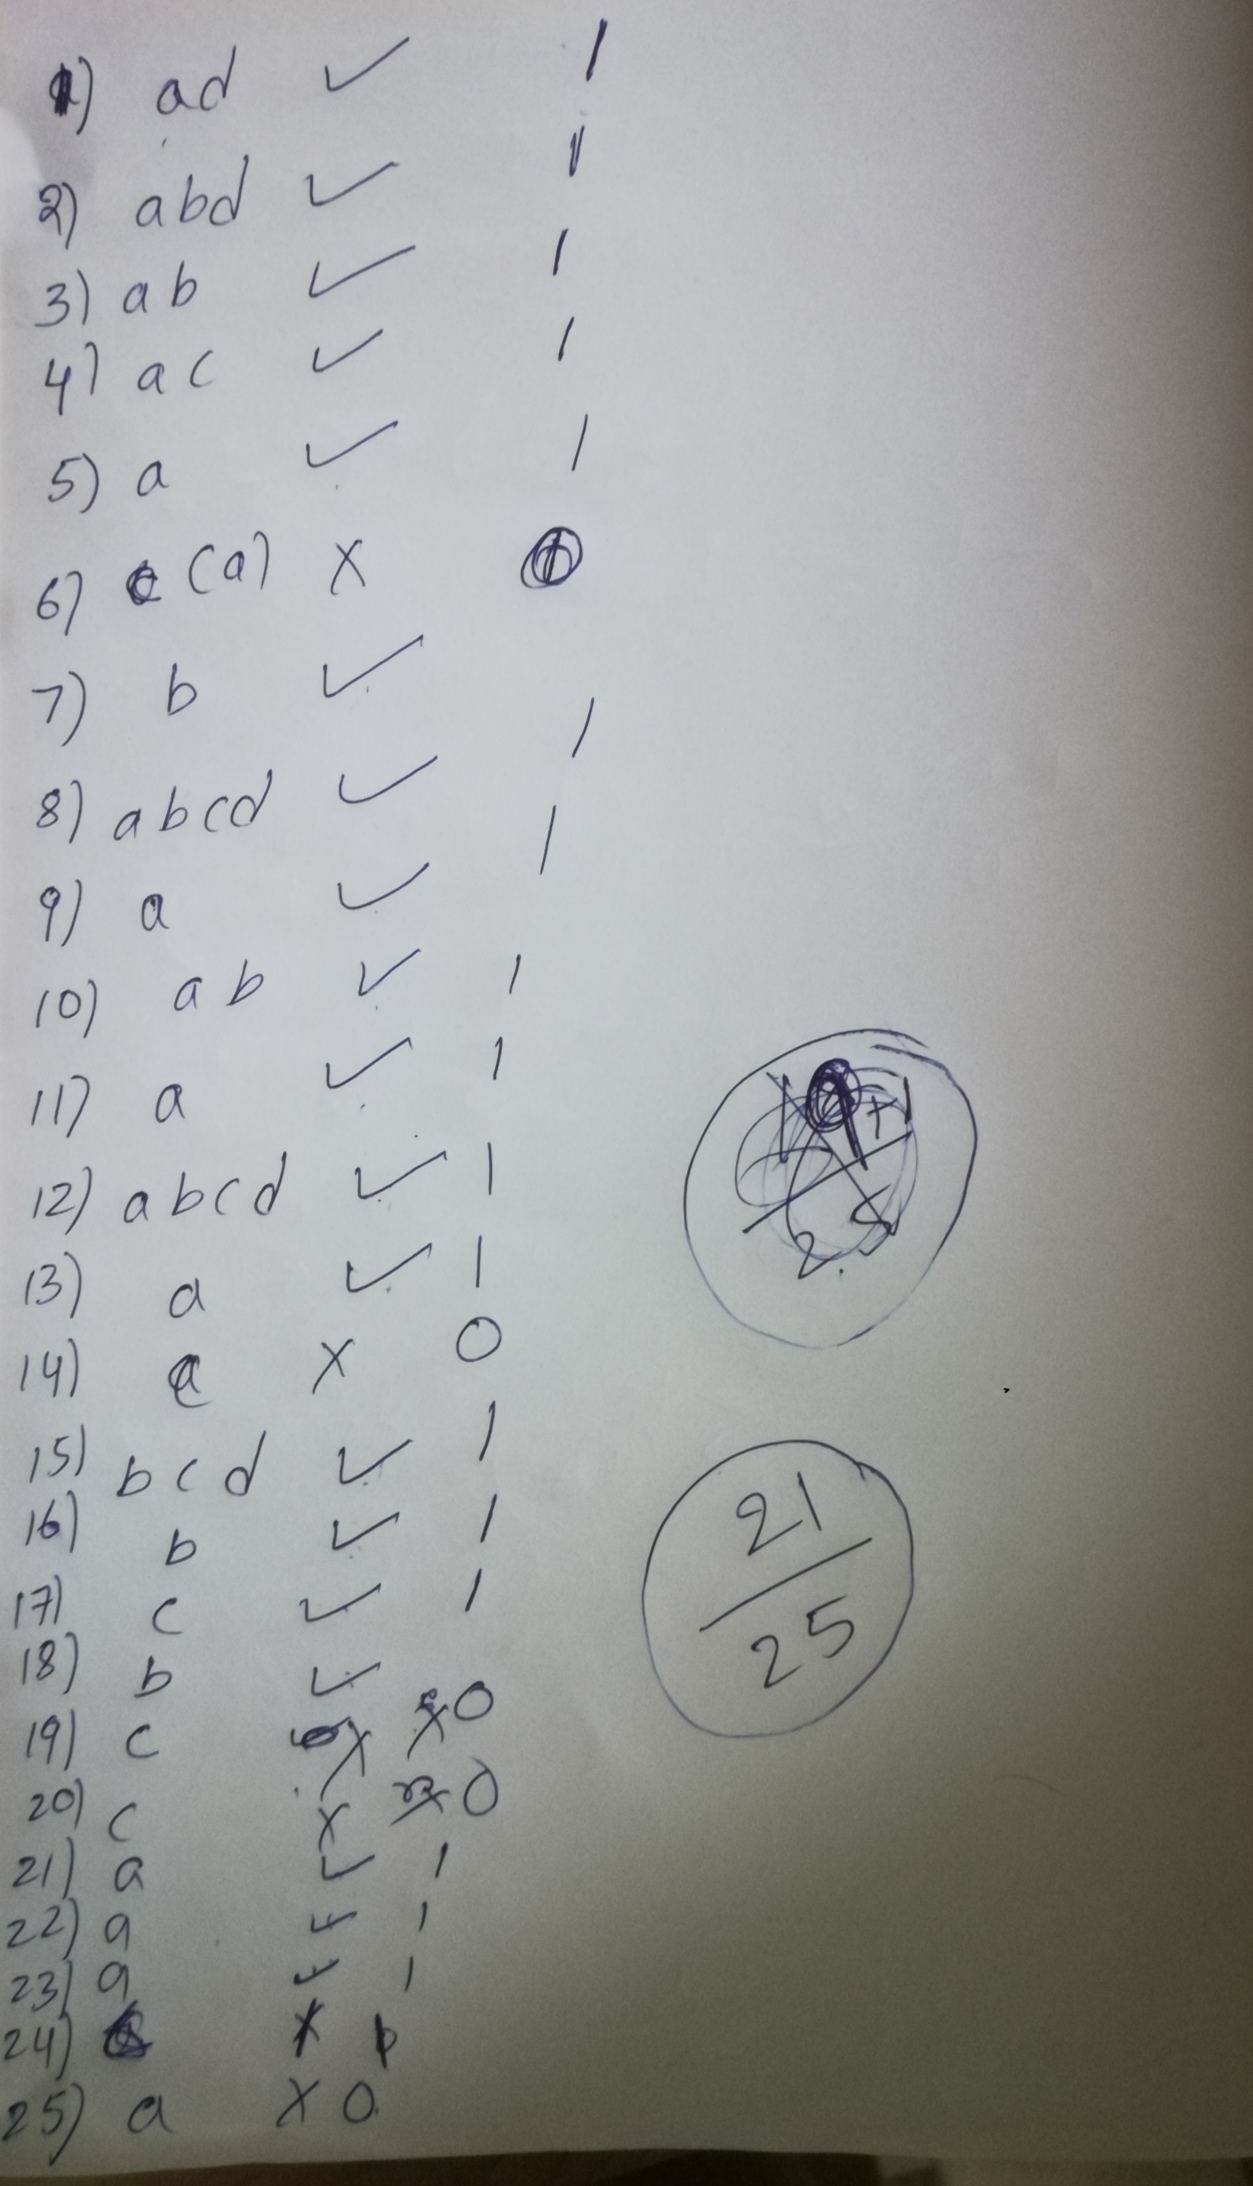 1) ad ✓ 1
2) abd ✓ 1
3) ab ✓ 1
4) ac ✓ 1
5) a ✓ 1
6) c (a) X
7) b ✓ 1
8) abcd ✓ 1
9) a ✓
10) ab ✓ 1
11) a ✓ 1
12) abcd ✓ 1
13) a ✓ 1
14) X 0
15) bcd ✓ 1
16) b ✓ 1
17) c ✓ 1
18) b ✓
19) c X 0
20) c X 0
21) a ✓ 1
22) a ✓ 1
23) a ✓ 1
24)
25) a X 0
21
25